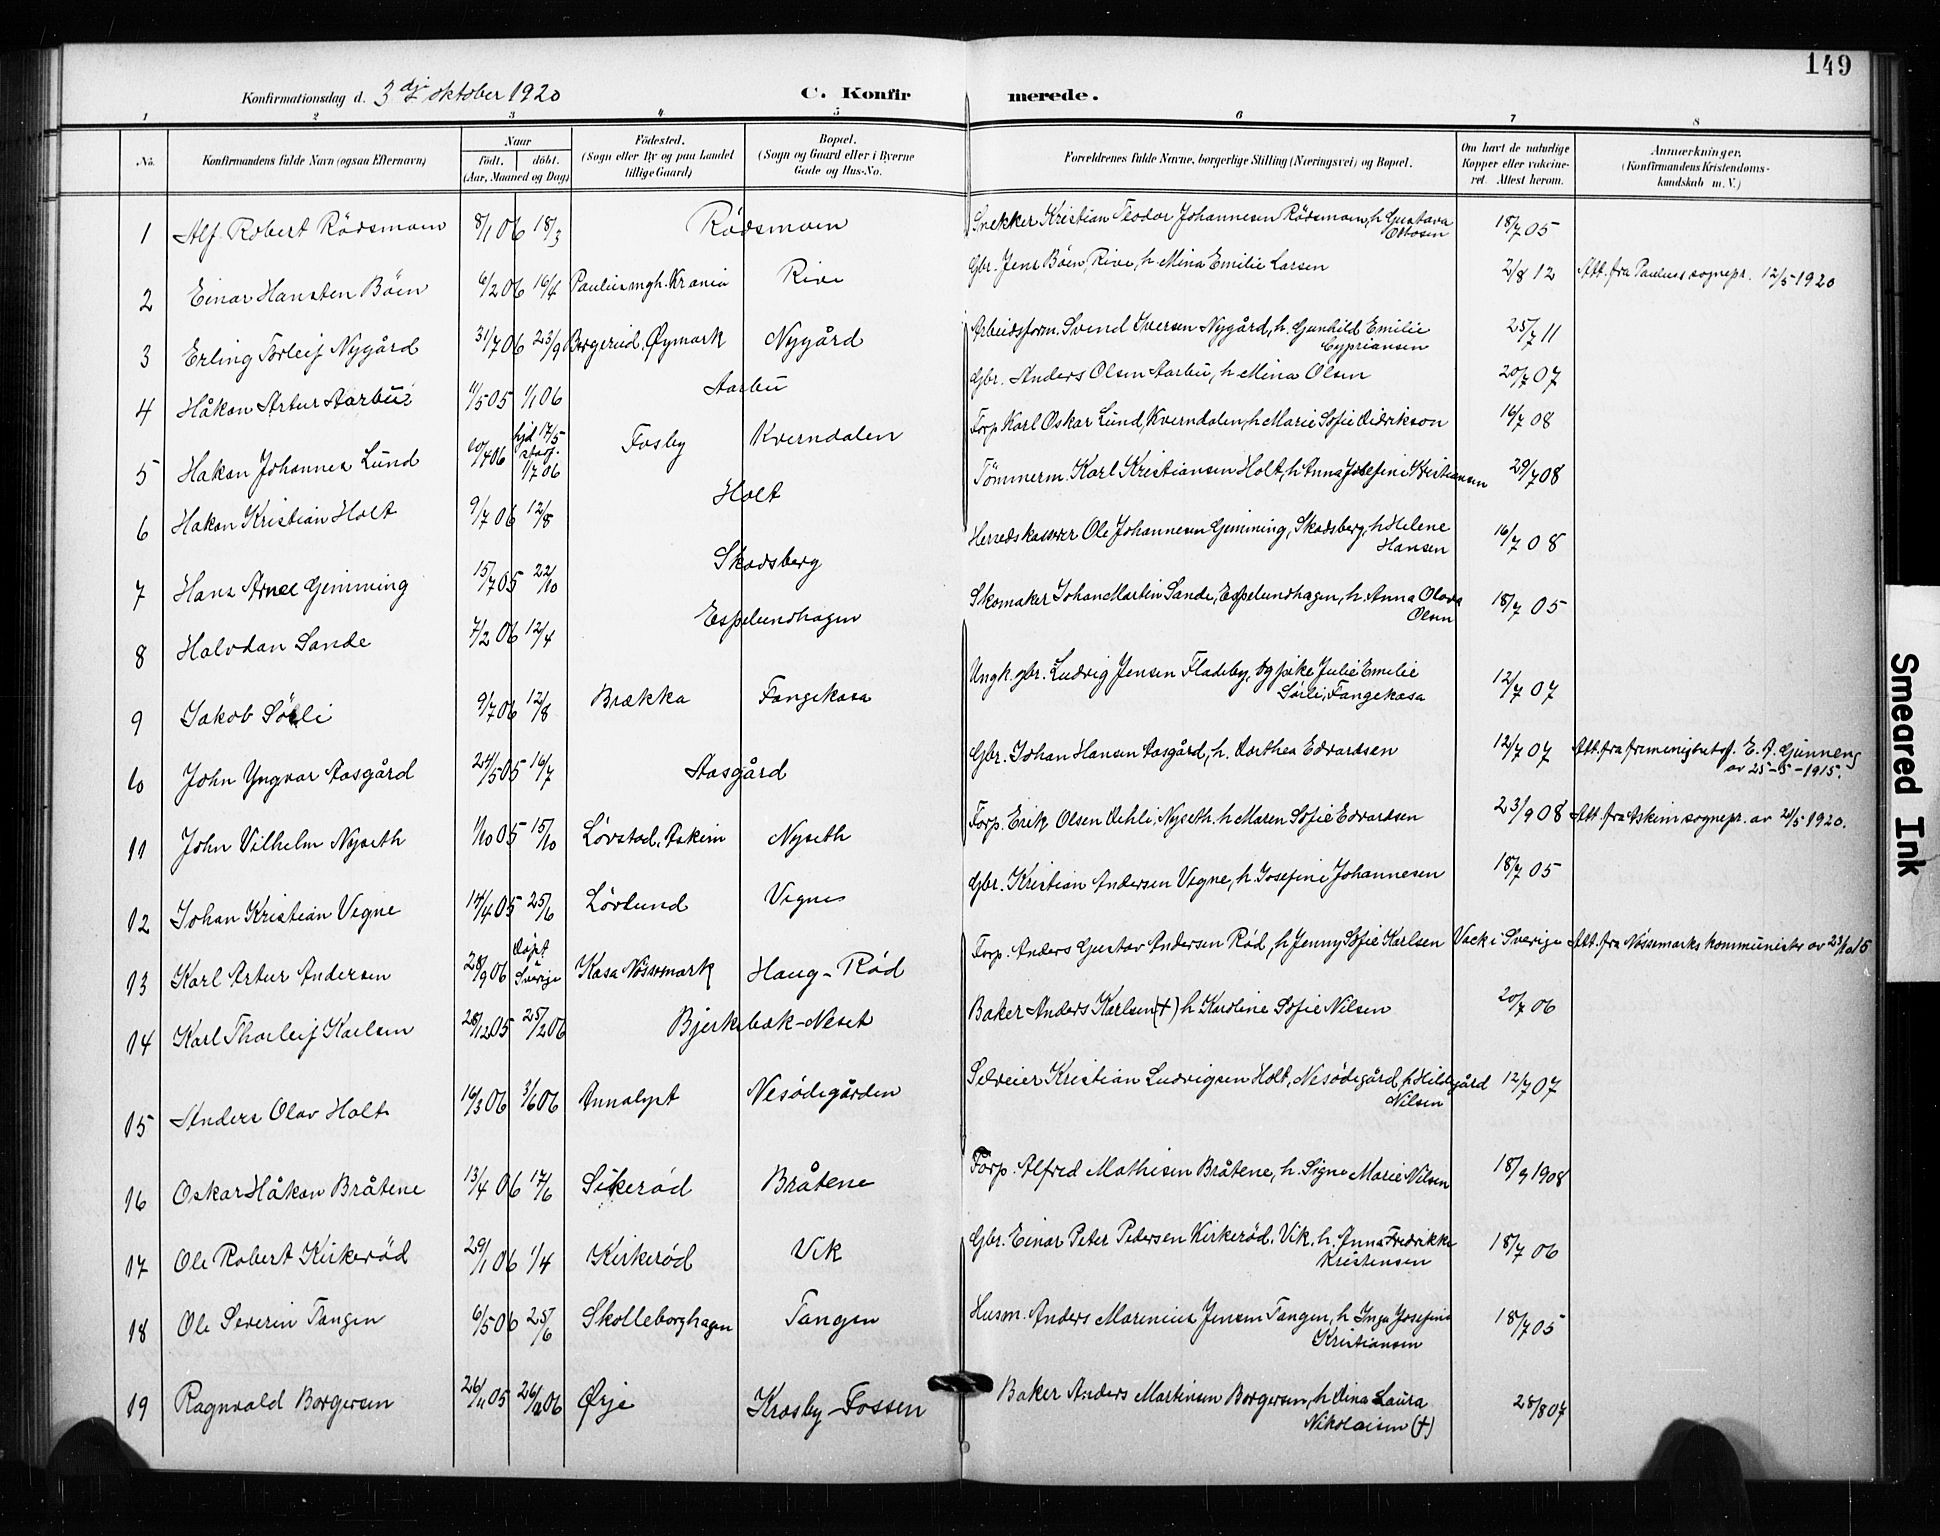 149
Konfirmationsdag d. 3dje oktober 1920 C. Konfirmerede.
1 2 3 4 5 6 7 8
No. Konfirmandens fulde Navn (ogsaa Efternavn) Naar födt. döbt. (Aar, Maaned og Dag) Födested. (Sogn eller By og paa Landet tillige Gaard) Bopæl. (Sogn og Gaard eller i Byerne Gade og Hus-No. Forældrenes fulde Navne, borgerlige Stilling (Næringsvei) og Bopæl. Om havt de naturlige Kopper eller vakcineret. Attest herom. Anmærkninger. (Konfirmandens Kristendomskundskab m. V.)
1 Alf Robert Rödsmoen 8/1 06 18/3 Rödsmoen Snekker Kristian Teodor Johannesen Rödsmoen, h Gustava
18/7 05
2 Einar Hansten Böen 6/2 06 16/4 Paulus mgh. Krania Rive Gbr. Jens Böen, Rive, h Mina Emilie Larsen 2/8 12 Att. fra Paulus sognepr. 12/5-1920
3 Erling Torleif Nygård 31/7 06 23/9 Borgerud, Øymark Nygård Arbeidsform. Svend Iversen Nygård, h. Gunhild Emilie
Cypriansen 25/7 11
4 Håkon Artur Aarbu 11/5 05 1/1 06 Aarbu Gbr. Anders Olsen Aarbu, h Mina Olsen 20/7 07
5 Hakon Johannes Lund 20/4 06 hjd 17/5 stadf. 1/7 06 Fosby Kverndalen Forp Karl Oskar Lund, Kverndalen, h Marie Sofie Didrikson 16/7 08
6 Hakon Kristian Holt 9/7 06 12/8 Holt Tömmerm. Karl Kristiansen Holt, h Anna Josefine Kristiansen 29/7 08
7 Hans Arne Gemming 15/7 05 22/10 Skodsberg Herredskasserer Ole Johannesen Gemming, Skodsberg, h Helene
Hansen 16/7 08
8 Halvdan Sande 7/2 06 12/4 Espelundhagen Skomaker Johan Martin Sande, Espelundhagen, h. Anna Olava
Olsen 18/7 05
9 Jakob Sörli 9/7 06 12/8 Brækka Fangekasa Ungk. gbr. Ludvig Jensen Fladeby, og pike Julie Emilie
Sörli, Fangekasa 12/7 07
10 John Yngvar Aasgård 24/5 05 16/7 Aasgård Gbr. Johan Hansen Aasgård, h. Dorthea Edvardsen 12/7 07 Att. fra E. A. Gunneng
av 25-5-1915.
11 John Vilhelm Nyseth 1/10 05 15/10 Lövstad, Askim Nyseth Forp. Erik Olsen Dehli, Nyseth. h Maren Sofie Edvardsen 23/9 08 Att. fra Askim sognepr. av 21/5 1920.
12 Johan Kristian Vegne 14/4 05 25/6 Lövlund Vegne Gbr. Kristian Andersen Vegne, h. Josefine Johannesen 18/7 05
13 Karl Artur Andersen 28/9 06 Döpt i Sverige Kasa Nössemark Haug-Röd Forp. Anders Gustav Andersen Röd, h Jenny Sofie Karlsen Vack i Sverige Att. fra Nössemarks kommunistr av
14 Karl Thorleif Karlsen 28/12 05 25/2 06 Bjerkebæk-Neset Baker Anders Karlsen (+) h Karoline Sofie Nilsen 20/7 06
15 Anders Olav Holt 16/3 06 3/6 06 Annalyst Nesödegården Selveier Kristian Ludvigsen Holt, Nesödegård, h Hildegård
Nilsen 12/7 07
16 Oskar Håkon Bråtene 13/4 06 17/6 Sikeröd Bråtene Forp. Alfred Mathisen Bråtene, h. Signe Marie Nilsen 18/9 1908
17 Ole Robert Kirkeröd 29/1 06 1/4 Kirkeröd Vik Gbr. Einar Peter Pedersen Kirkeröd, Vik, h. Anna Fredrikke
Kristensen 18/7 06
18 Ole Severin Tangen 6/5 06 25/6 Skolleborghagen Tangen Husm. Anders Marenius Jensen Tangen, h Inga Josefine
Kristiansen 18/7 05
19 Ragnvald Borgersen 26/11 05 26/12 06 Ørje Krosby-Fossen Baker Anders Martinsen Borgersen, h Dina Laura
Nikolaisen (+) 28/8 07
Smeared Ink